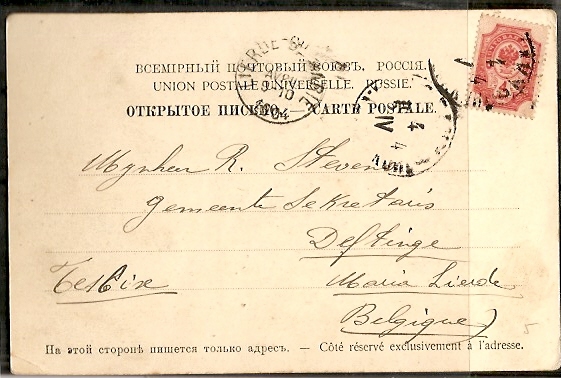 ВСЕМІРНЫЙ ПОЧТОВЫЙ СОЮЗЪ. РОССІЯ.
UNION POSTALE UNIVERSELLE. RUSSIE.
ОТКРЫТОЕ ПИСЬМО. — CARTE POSTALE.
9-10
1904
4 4
Mynheer R. Stevens
Gemeente Sekretaris
Deftinge
Maria Lierde
Belgique
На этой сторонѣ пишется только адресъ. — Côté réservé exclusivement à l'adresse.